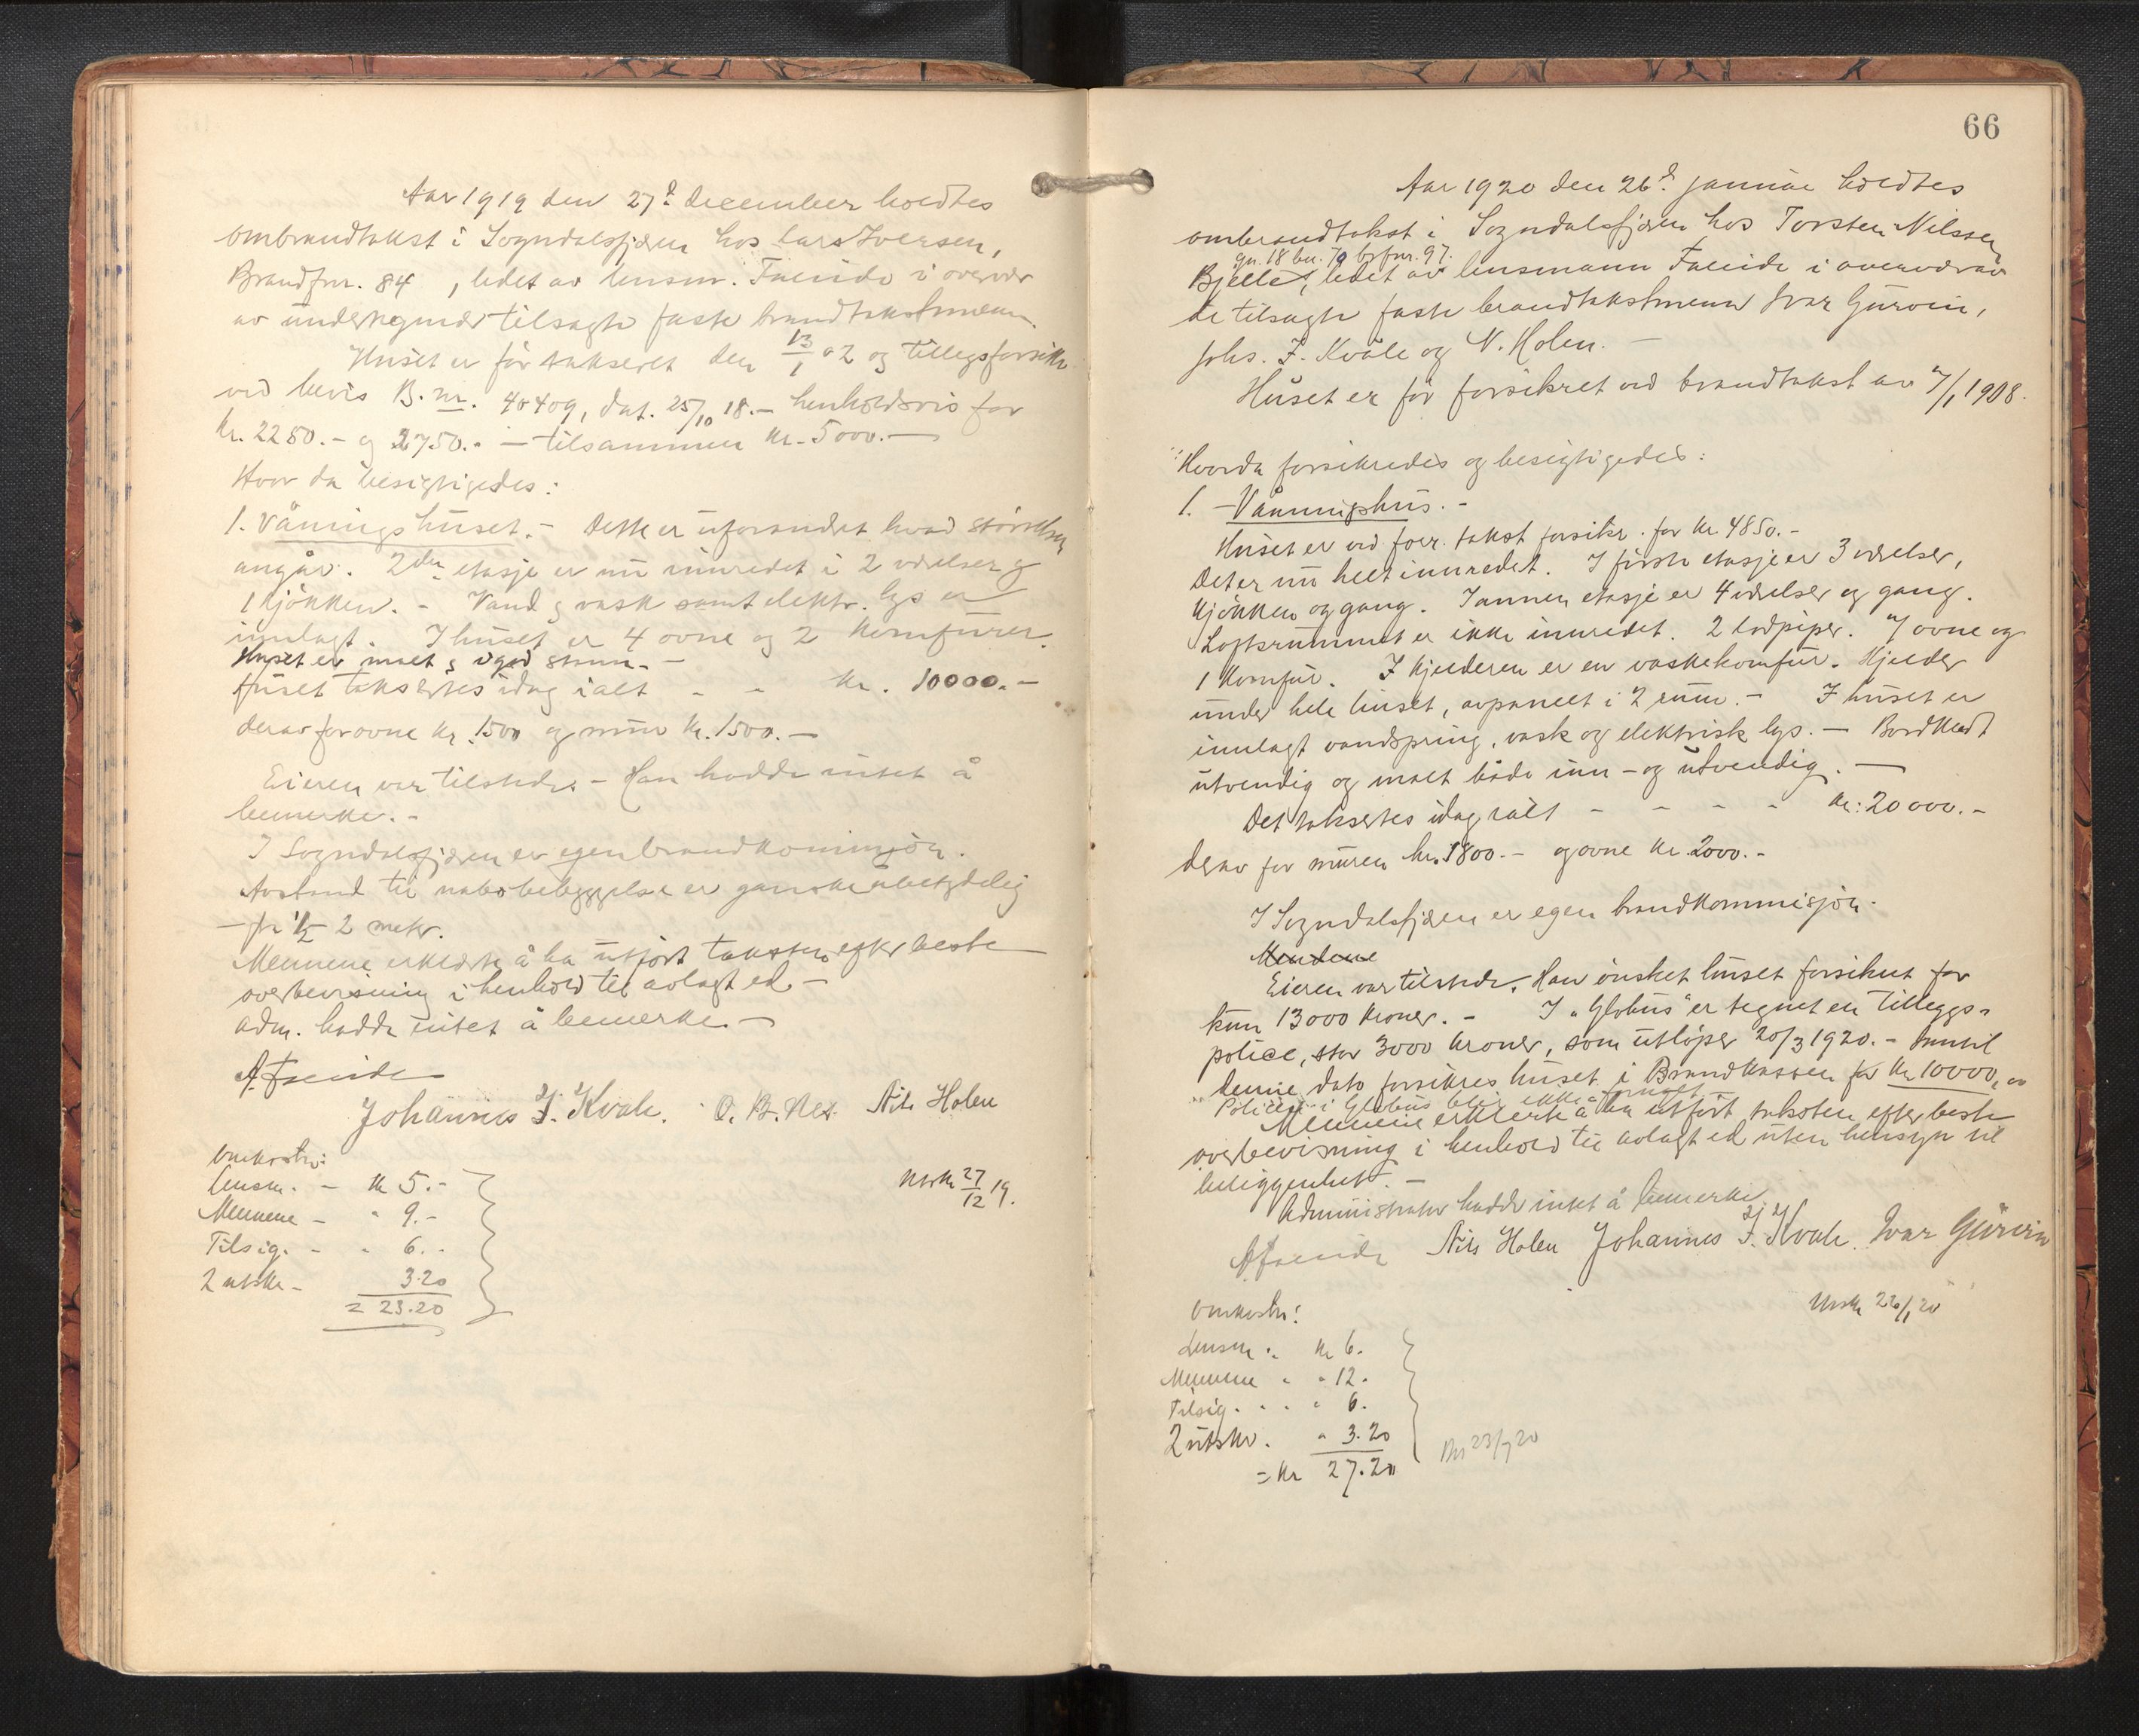 Aar 1919 den 27d december holdtes
ombrandtakst i Sogndalsfjæren hos Lars Iversen,
Brandfnr. 84, ledet av lensm. Fæeide i overvær
av undertegnede tilsagte faste brandtakstmenn.
Huset er før taksert den 13/1 02 og tillegsforsikr.
ved bevis B. nr. 40409, dat. 25/10 18.- henholdsvis for
kr. 2250.- og 2750.- - tilsammen kr. 5000.-
Hvor da besigtigedes:
1. Våningshuset. - Dette er uforandret hvad størrelsen
angår. 2den etasje er nu innredet i 2 værelser og
1 kjøkken. - Vand og vask samt elektr. lys er
innlagt. I huset er 4 ovne og 2 komfurer.
Huset er malt og i god stann. -
Huset takseres idag ialt - - kr. 10000.-
derav for ovne kr. 1500 og mur kr. 1500.-
Eieren var tilstede. - Han hadde intet å
bemerke. -
I Sogndalsfjæren er egen brandkommisjon.
Avstand til nabobebyggelse er ganske ubetydelig
- fra 1/2 - 2 meter.
Mennene erklærte å ha utført taksten efter beste
overbevisning i henhold til avlagt ed. -
Adm. hadde intet å bemerke. -
A Fæeide
Johannes J. Kvale. O. B. Nes. Nils Holen
Omkostn:
Lensm. - kr 5.-
Mennene - " 9.-
Tilsig. - " 6.-
2 utskr. - 3.20
= 23.20
Utskr 27/12 19.
66
Aar 1920 den 26d januar holdtes
ombrandtakst i Sogndalsfjæren hos Torsten Nilssen
gn. 18 bn. 70 brfnr. 97.
Bjelle, ledet av lensmann Fæeide i overvær av
de tilsagte faste brandtakstmenn Ivar Gurvin,
Johs. J. Kvåle og N. Holen. -
Huset er før forsikret ved brandtakst av 7/1 1908.
Hvorda forsikredes og besigtigedes:
1. - Våningshus. -
Huset er ved forr. takst forsikr. for kr. 4850.-
Det er nu helt innredet. I første etasje er 3 værelser,
kjøkken og gang. I annen etasje er 4 værelser og gang.
Loftsrummet er ikke innredet. 2 lodpiper. 7 ovne og
1 komfur. I kjelderen er en vaskekomfur. Kjelder
under hele huset, avpanelt i 2 rum. - I huset er
innlagt vandspring, vask og elektrisk lys. - Bordklædt
utvendig og malt både inn- og utvendig. -
Det takseres idag ialt - - - - kr: 20000.-
derav for muren kr. 1800.- og ovne kr. 2000.-
I Sogndalsfjæren er egen brandkommisjon.
Mendene
Eieren var tilstede. Han ønsket huset forsikret for
kun 13000 kroner. - I "Globus" er tegnet en tilleggs-
police, stor 3000 kroner, som utløper 20/3 1920. - Inntil
denne dato forsikres huset i Brandkassen for kr. 10000, da
Policen i Globus blir ikke fornyet.
Mennene erklærte å ha utført taksten efter beste
overbevisning i henhold til avlagt ed uten hensyn til
beliggenhet. -
Administrator hadde intet å bemerke.
A Fæeide Nils Holen Johannes J. Kvale. Ivar Gurvin
Utskr 26/1 20
Omkostn:
Lensm. " kr 6.
Mennene " " 12.
Tilsig. " " 6.
2 utskr. " 3.20
= kr 27.20
23/7 20